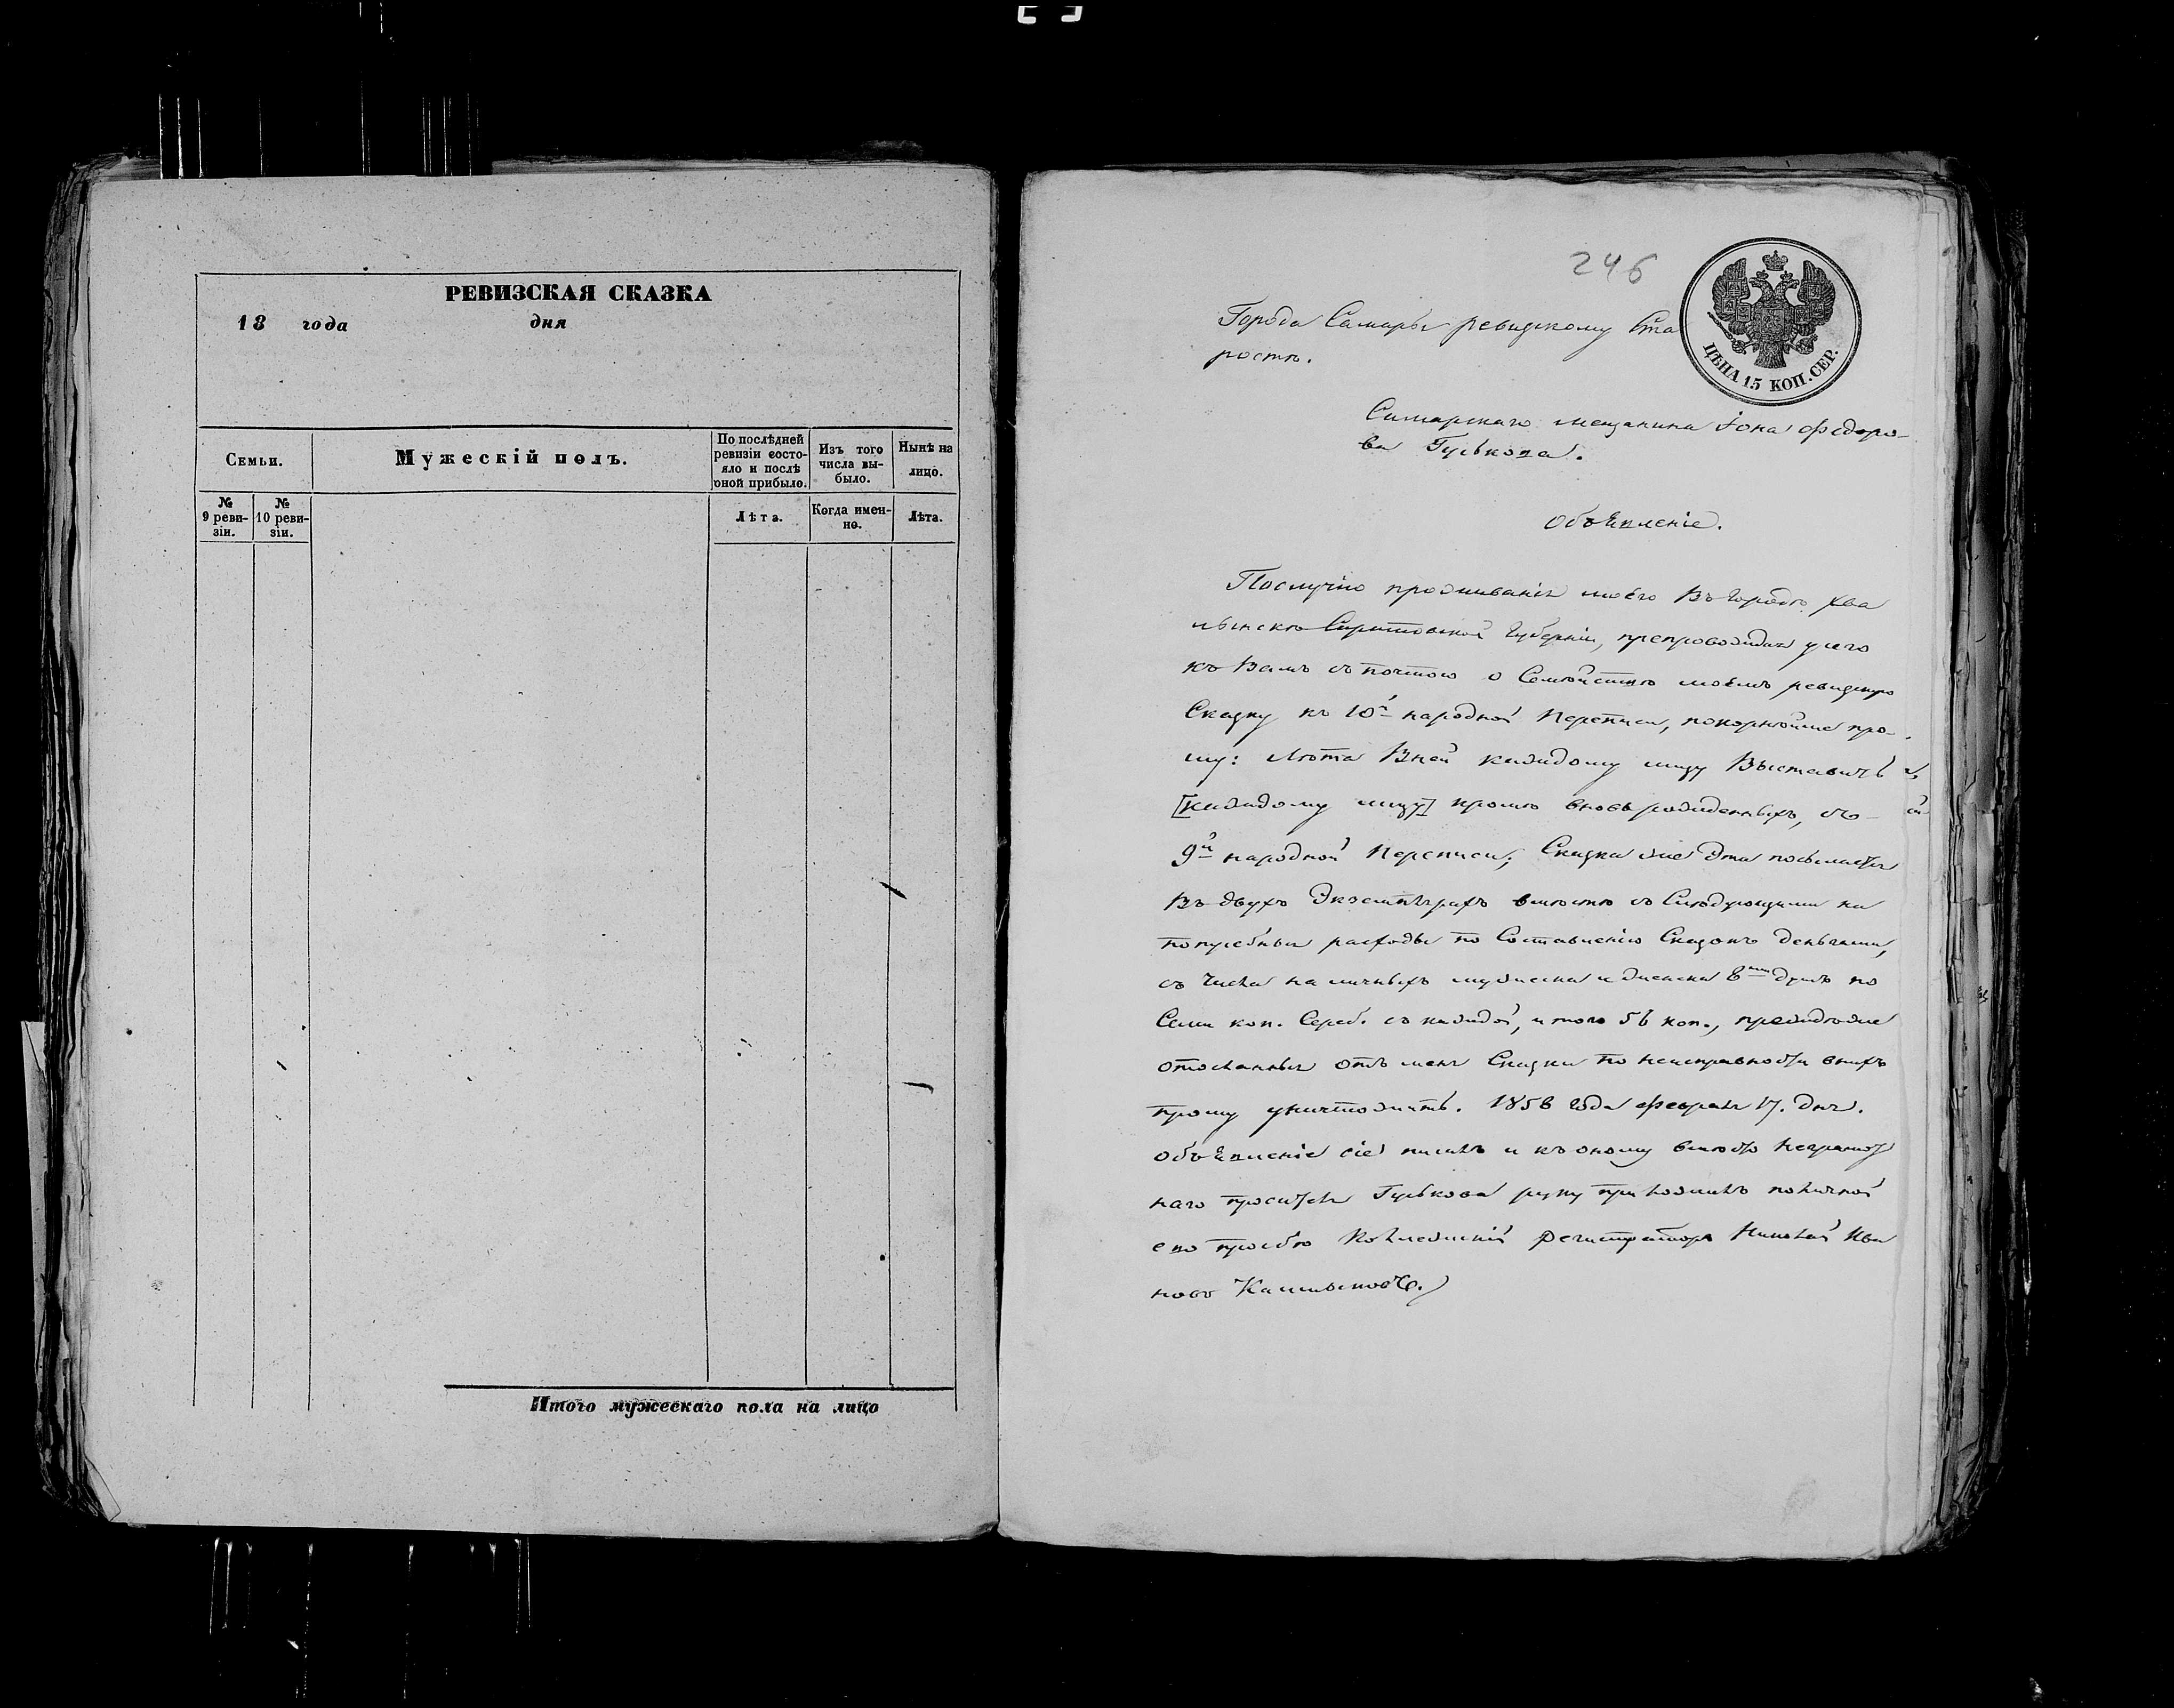 РЕВИЗСКАЯ СКАЗКА
18 года дня
Семьи.
Мужескій полъ.
По послѣдней ревизіи состо-
яло и послѣ
оной прибыло.
Изъ того
числа вы-
было.
Нынѣ на
лицо.
№
9 реви-
зіи.
№
10 реви-
зіи.
Лѣта.
Когда имен-
но.
Лѣта.
Итого мужескаго пола на лицо
246
ЦѢНА 15 КОП. СЕР.
Города Самары ревизскому Ста
ростѣ.
Самарскаго мещанина Іона Федоро-
ва Гуськова.
Объявленіе.
Послучаю проживанія моего Въ городѣ Хва
лынскѣ Саратовской Губерніи, препровождая у сего
къ Вамъ съ почтою о Семѣйствѣ моемъ ревизскую
Сказку къ 10й народной Переписи, покорнѣйше про-
шу: лѣта Вней каждому лицу Выставить
[каждому лицу] кромѣ вновь рожденныхъ, съ
9й народной Переписи; Сказка же Эта посылается
Въ двухъ Экземплярахъ вмѣстѣ съ Слѣдующими на
потребныя расходы по Составленію Сказокъ деньгами,
съ числа на личныхъ мужеска и женска душъ по
Семи коп. Сереб. съ каждой, итого 56 коп., преждѣже
отосланныя отъ меня Сказки по неисправности внихъ
прошу уничтожить. 1858 года Февраля 17. дня.
Объявленіе сіе писалъ и къ оному вмѣсто неграмот
наго просителя Гуськова руку приложилъ по личной
его прозбѣ Коллежскій Регистраторъ Николай Ива
новъ